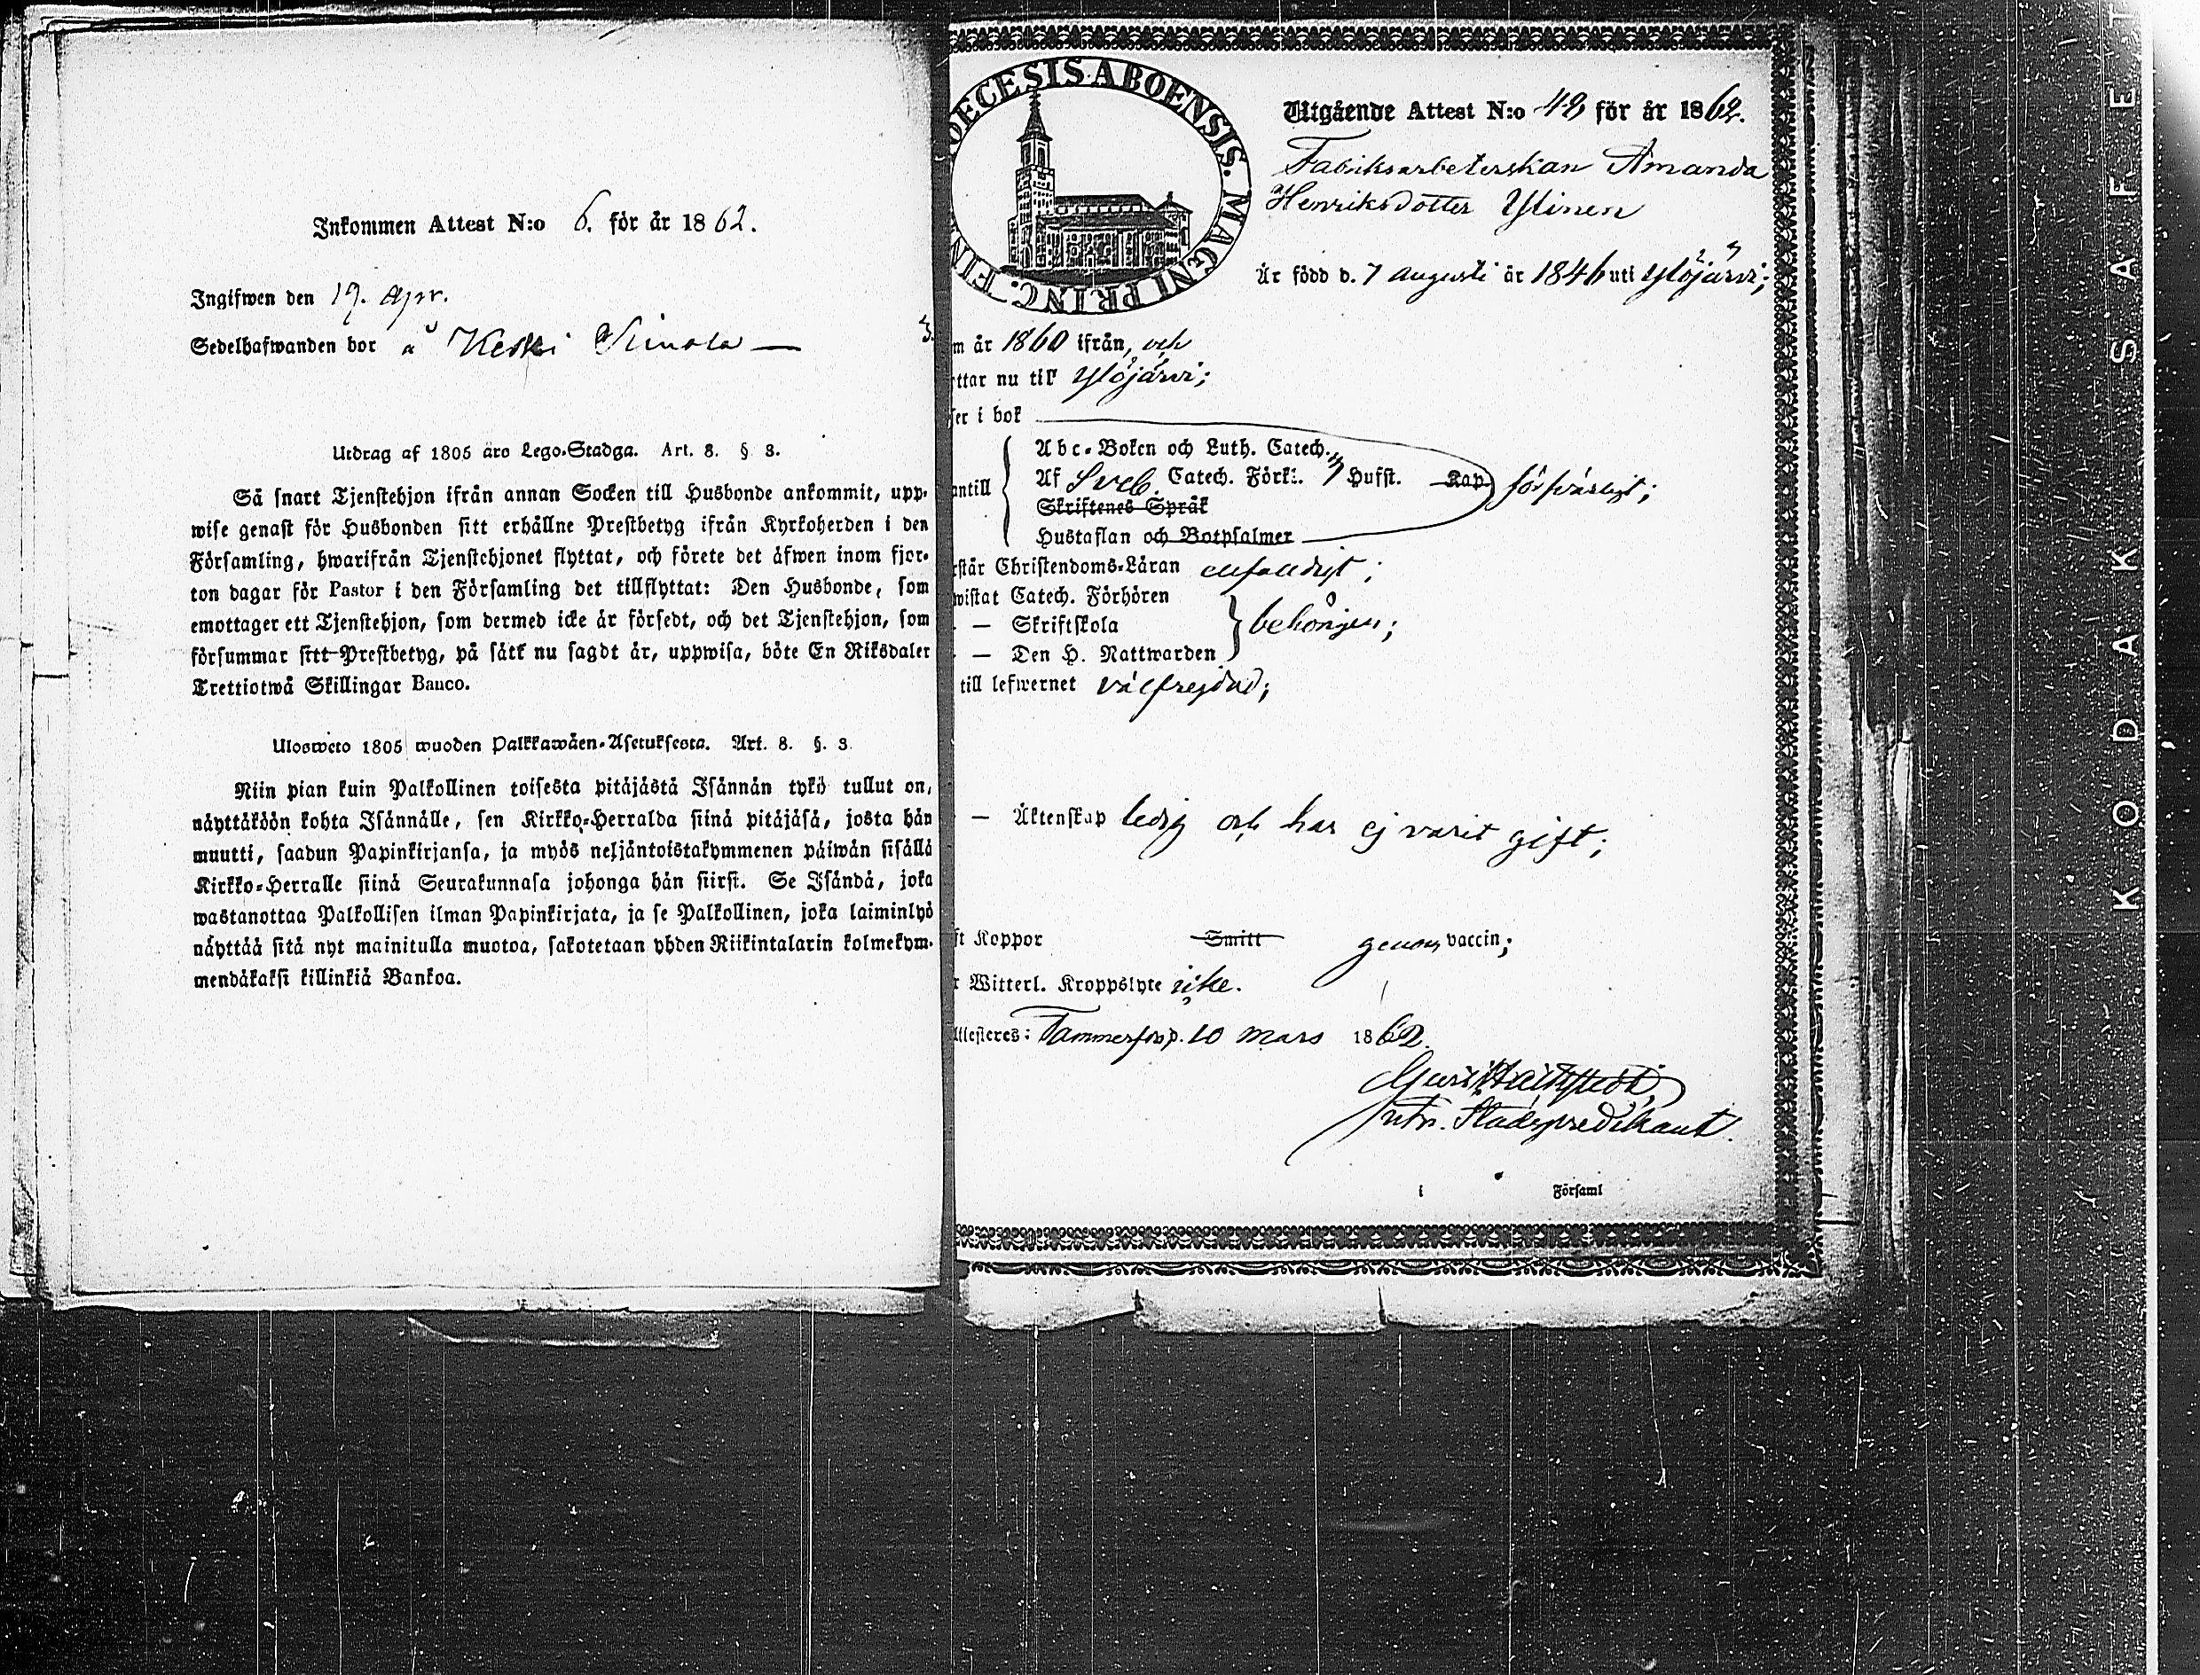 Inkommen Attest N:o 6. för år 1862.
Ingifwen den 19. Apr.
Sedelhafwanden bor å Keski Simola —
Utdrag af 1805 års Lego-Stadga. Art. 8. § 3.
Så snart Tjenstehjon ifrån annan Socken till Husbonde ankommit, upp-
wise genast för Husbonden sitt erhållne Prestbetyg ifrån Kyrkoherden i den
Församling, hwarifrån Tjenstehjonet flyttat, och förete det äfwen inom fjor-
ton dagar för Pastor i den Församling det tillflyttat: Den Husbonde, som
emottager ett Tjenstehjon, som dermed icke är försedt, och det Tjenstehjon, som
försummar sitt Prestbetyg, på sätt nu sagdt är, uppwisa, böte En Riksdaler
Trettiotwå Skillingar Banco.
Ulosweto 1805 wuoden Palkkawäen-Asetuksesta. Art. 8. §. 3.
Niin pian kuin Palkollinen toisesta pitäjästä Isännän tykö tullut on,
näyttäköön kohta Isännälle, sen Kirkko-Herralda siinä pitäjäsä, josta hän
muutti, saadun Papinkirjansa, ja myös neljäntoistakymmenen päiwän sisällä
Kirkko-Herralle siinä Seurakunnasa johonga hän siirsi. Se Isändä, joka
wastanottaa Palkollisen ilman Papinkirjata, ja se Palkollinen, joka laiminlyö
näyttää sitä nyt mainitulla muotoa, sakotetaan yhden Riikintalarin kolmekym-
mendäkaksi killinkiä Bankoa.
DECESIS ABOENSIS. MAGNI PRINC. FIN
Utgående Attest N:o 48 för år 1862.
Fabriksarbeterskan Amanda
Henriksdotter Ylinen
Är född d. 7 augusti år 1846 uti Ylöjärvi;
m år 1860 ifrån, och
ttar nu till Ylöjärvi;
ser i bok
Abc-Boken och Luth. Catech.
antill Af Sveb. Catech. Förkl. Hufst. Kap försvarligt;
Skriftenes Språk
Hustaflan och Botpsalmer
rstår Christendoms-Läran enfaldigt;
wistat Catech. Förhören
— Skriftskola behörigen;
— Den H. Nattwarden
till lefwernet välfrejdad;
— Äktenskap ledig och har ej varit gift;
ft Koppor Smitt genom vaccin;
r Witterl. Kroppslyte icke.
Attesteres: Tammerfors d. 10 mars 1862.
Stadspredikant.
i Församl
KODAK SAFET